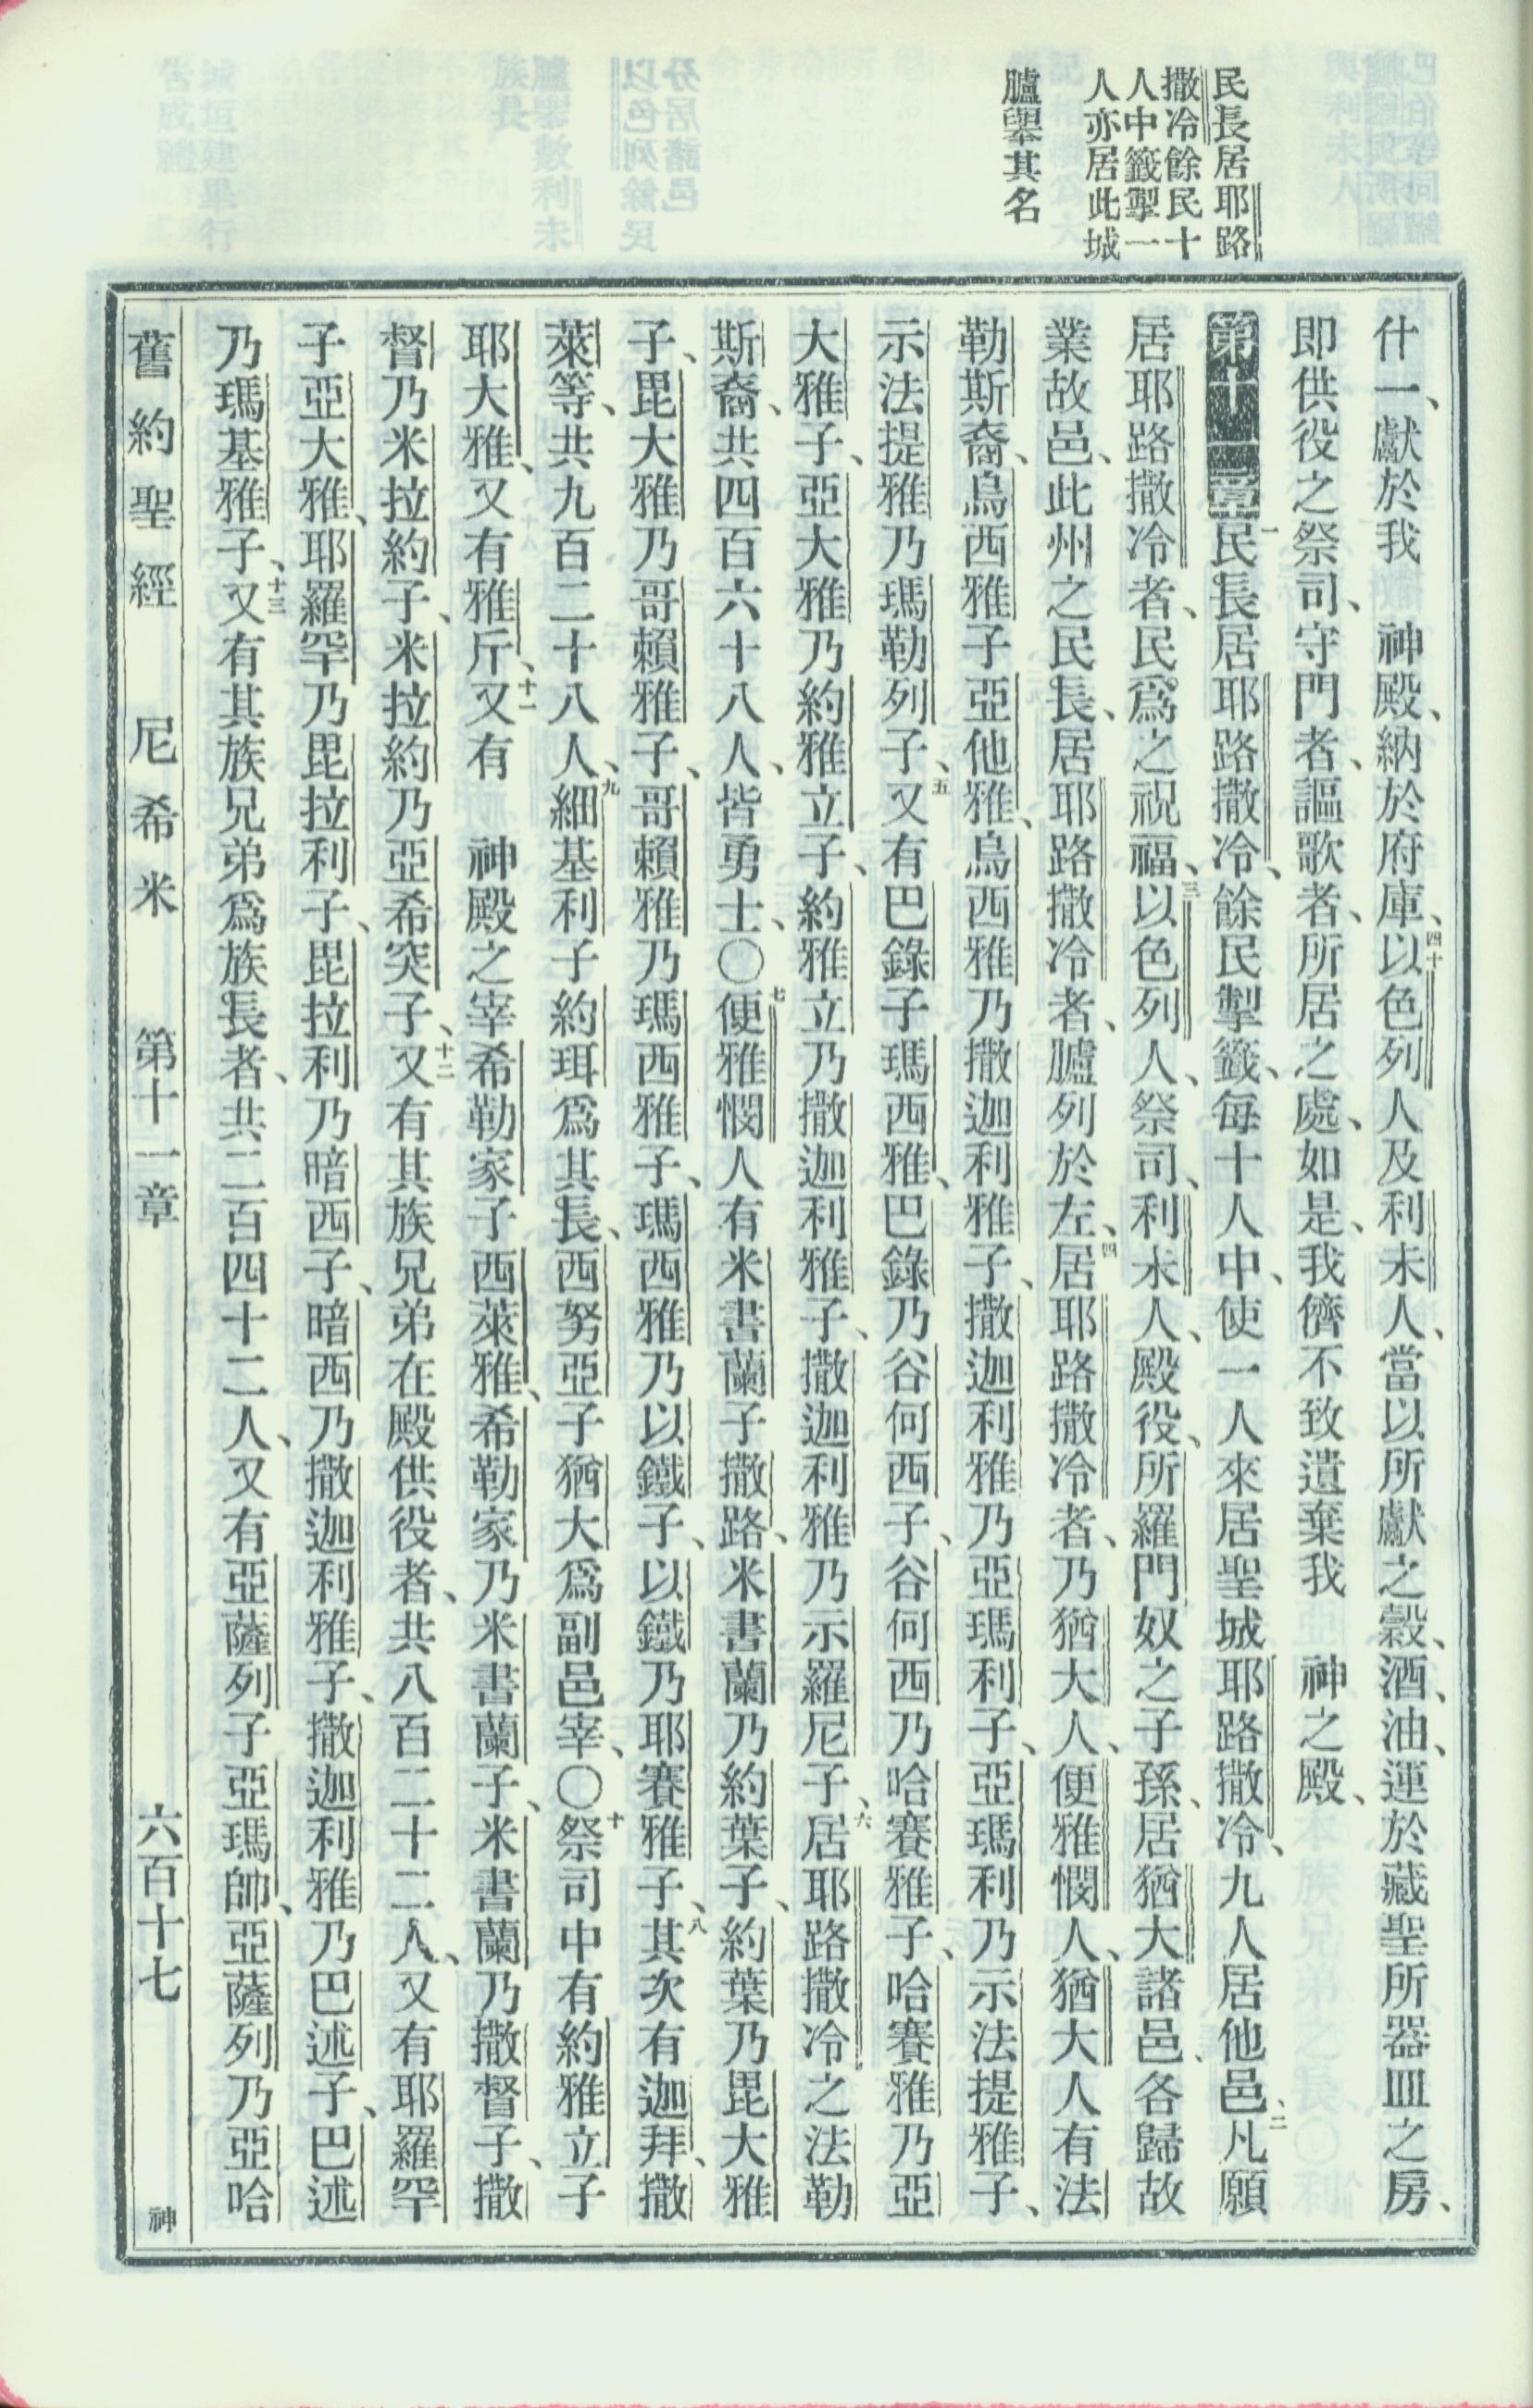 民長居耶路
撒冷餘民十
人中籤掣一
人亦居此城
臚舉其名
什一、獻於我　神殿、納於府庫、四十以色列人及利未人、當以所獻之穀、酒、油、運於藏聖所器皿之房、
即供役之祭司、守門者、謳歌者、所居之處、如是、我儕不致遺棄我　神之殿、
第十一章一民長居耶路撒冷、餘民掣籤、每十人中、使一人來居聖城耶路撒冷、九人居他邑、二凡願
居耶路撒冷者、民爲之祝福、三以色列人、祭司、利未人、殿役、所羅門奴之子孫、居猶大諸邑、各歸故
業故邑、此州之民長、居耶路撒冷者、臚列於左、四居耶路撒冷者、乃猶大人、便雅憫人、猶大人有法
勒斯裔、烏西雅子亞他雅、烏西雅乃撒迦利雅子、撒迦利雅乃亞瑪利子、亞瑪利乃示法提雅子、
示法提雅乃瑪勒列子、五又有巴錄子瑪西雅、巴錄乃谷何西子、谷何西乃哈賽雅子、哈賽雅乃亞
大雅子、亞大雅乃約雅立子、約雅立乃撒迦利雅子、撒迦利雅乃示羅尼子、六居耶路撒冷之法勒
斯裔、共四百六十八人、皆勇士、〇七便雅憫人有米書蘭子撒路、米書蘭乃約葉子、約葉乃毘大雅
子、毘大雅乃哥賴雅子、哥賴雅乃瑪西雅子、瑪西雅乃以鐵子、以鐵乃耶賽雅子、八其次有迦拜、撒
萊等、共九百二十八人、九細基利子約珥爲其長、西努亞子猶大爲副邑宰、〇十祭司中有約雅立子
耶大雅、又有雅斤、十一又有　神殿之宰希勒家子西萊雅、希勒家乃米書蘭子、米書蘭乃撒督子、撒
督乃米拉約子、米拉約乃亞希突子、十二又有其族兄弟在殿供役者、共八百二十二人、又有耶羅罕
子亞大雅、耶羅罕乃毘拉利子、毘拉利乃暗西子、暗西乃撒迦利雅子、撒迦利雅乃巴述子、巴述
乃瑪基雅子、十三又有其族兄弟爲族長者、共二百四十二人、又有亞薩列子亞瑪帥、亞薩列乃亞哈
舊約聖經　尼希米　第十一章　六百十七　神